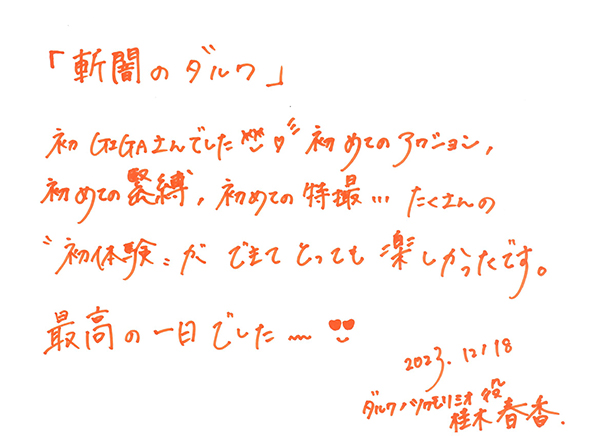 「斬闇のダルワ」
初GIGAさんでした 初めてのアクション,
初めての緊縛, 初めての特撮… たくさんの
〝初体験〟ができてとっても楽しかったです。
最高の一日でした〜
2023.12/18
ダルワバツワモリミオ役
桂木春香.